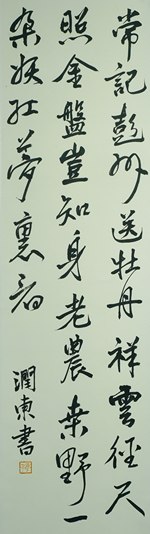 常記彭州送牡丹祥雲徑尺
照金盤豈知身老農桑野一
朵妖紅夢裏看
潤東書